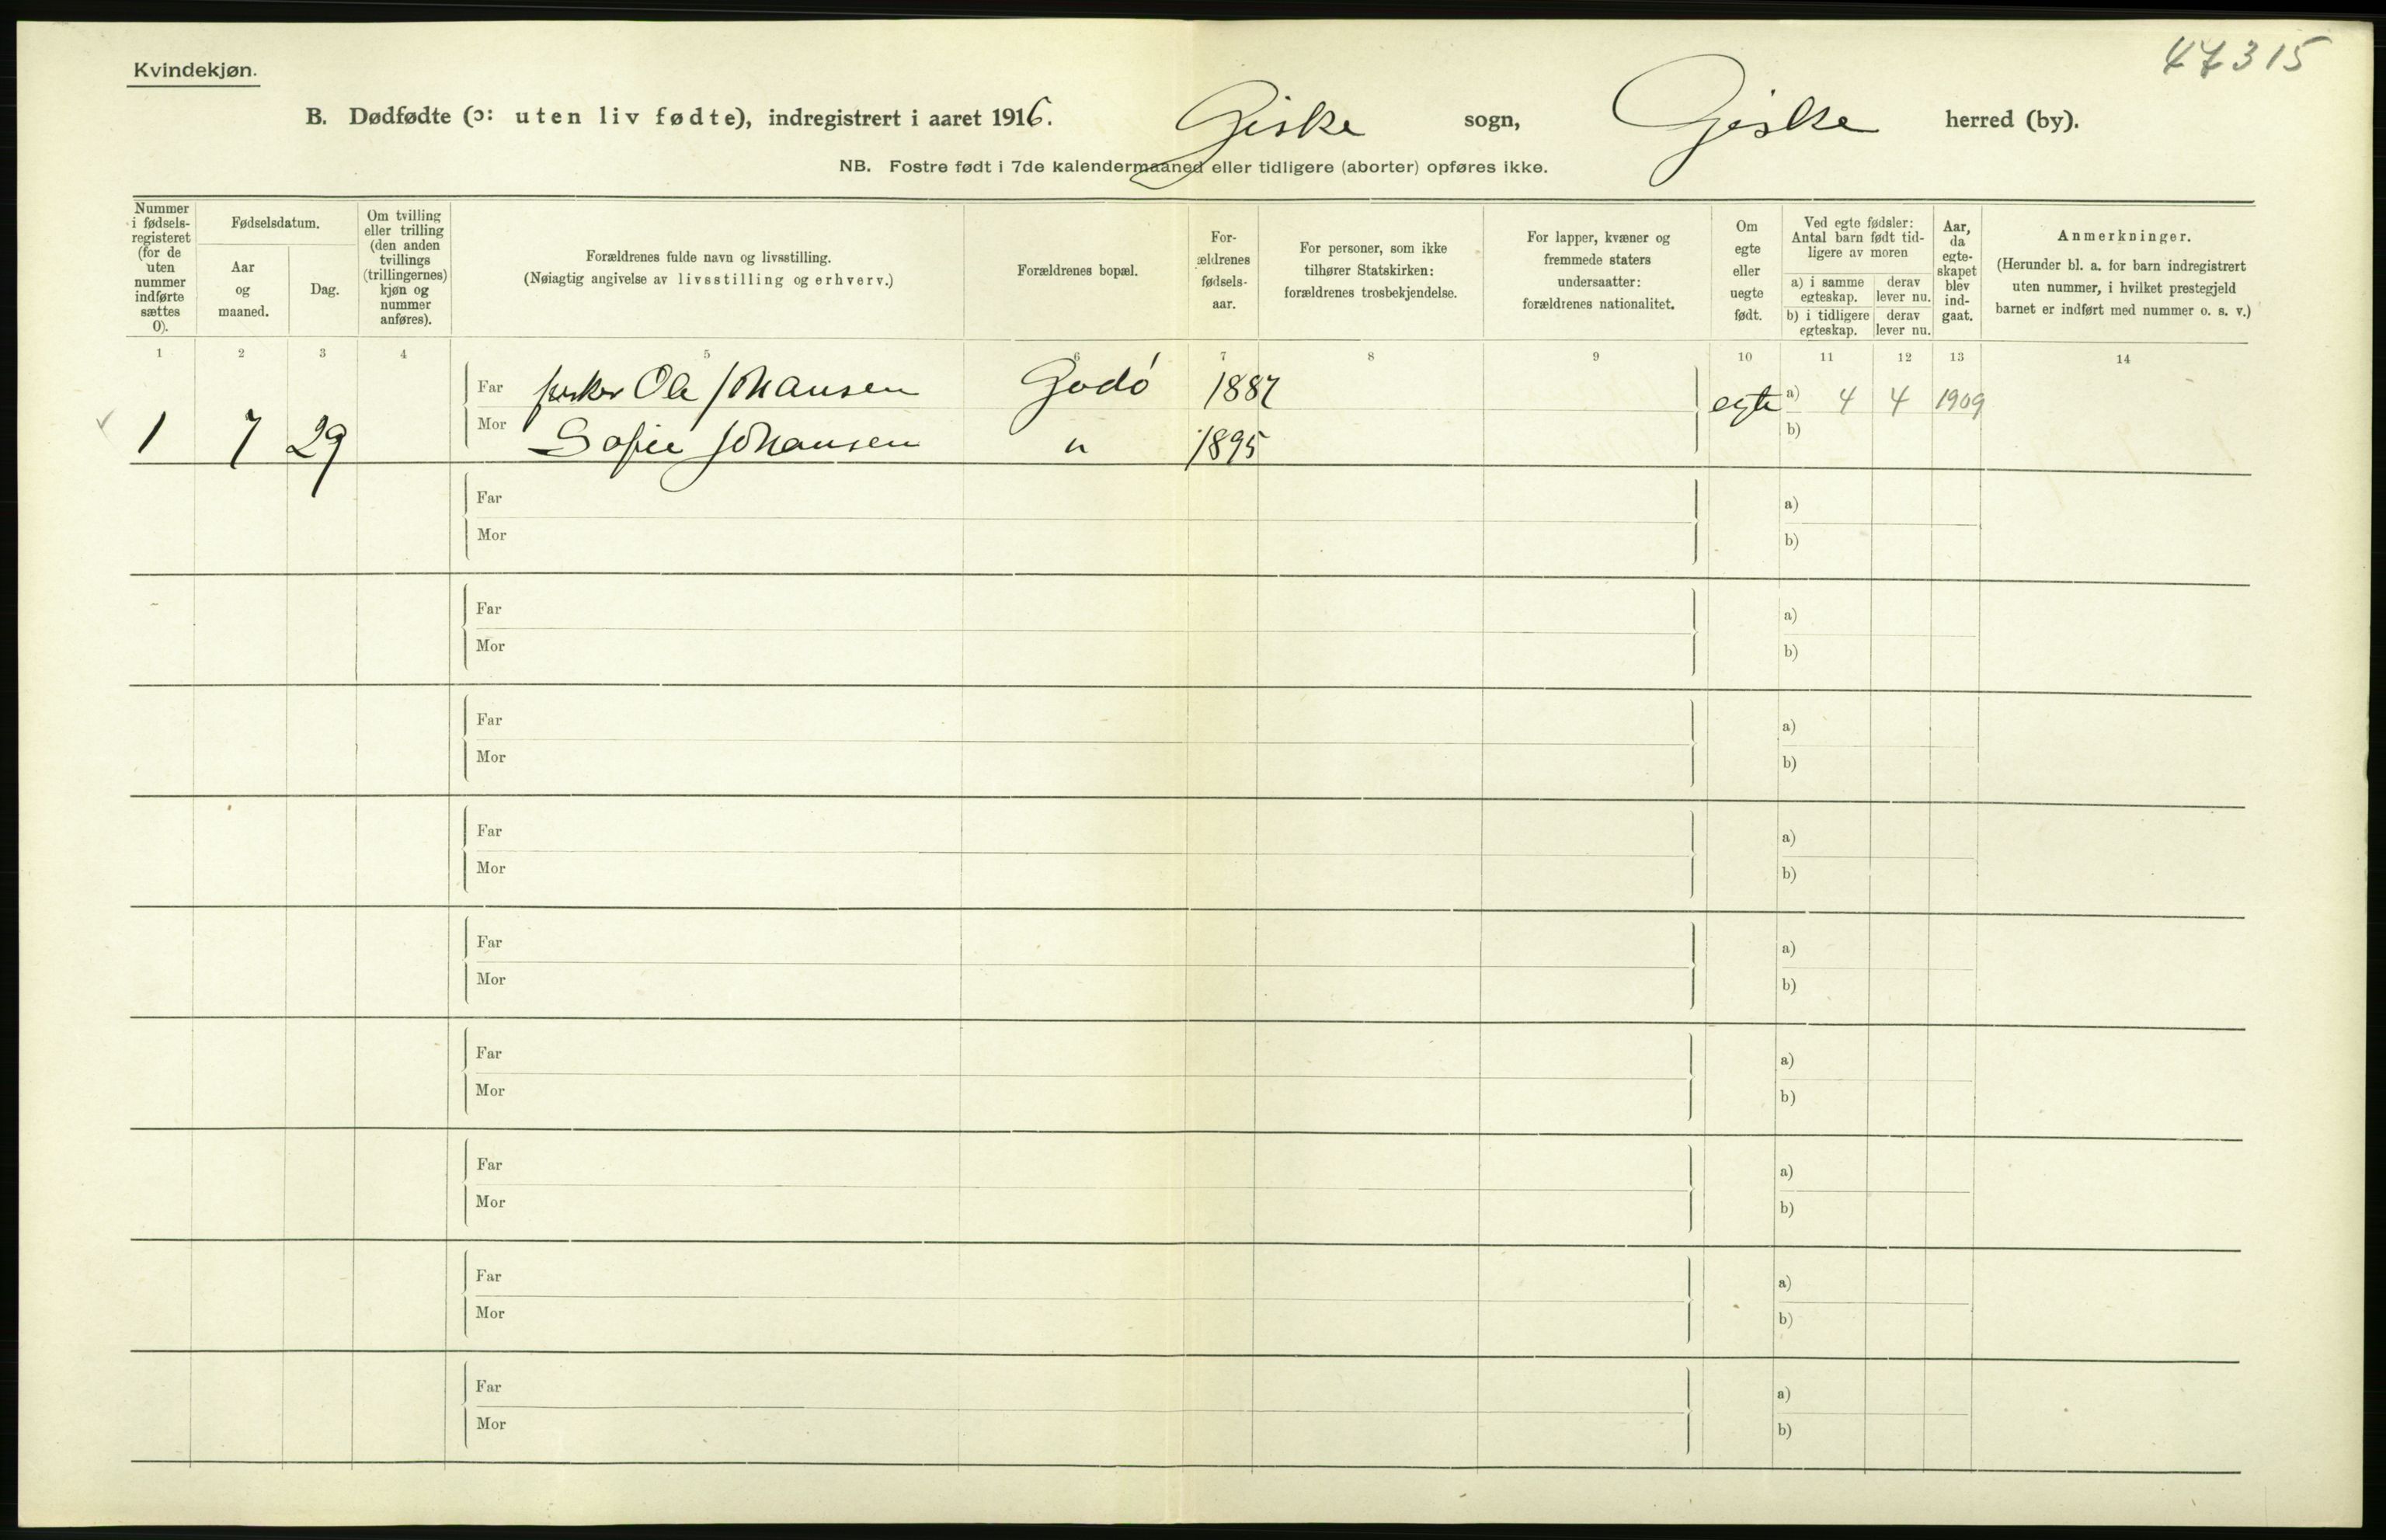 47315
Kvindekjøn.
B. Dødfødte (ɔ: uten liv fødte), indregistrert i aaret 1916. Giske sogn, Giske herred (by).
NB. Fostre født i 7de kalendermaaned eller tidligere (aborter) opføres ikke.
Nummer i fødsels-registeret (for de uten nummer indførte sættes 0).
Fødselsdatum.
Aar og maaned.
Dag.
Om tvilling eller trilling (den anden tvillings (trillingernes) kjøn og nummer anføres).
Forældrenes fulde navn og livsstilling.
(Nøiagtig angivelse av livsstilling og erhverv.)
Forældrenes bopæl.
For-ældrenes fødsels-aar.
For personer, som ikke tilhører Statskirken: forældrenes trosbekjendelse.
For lapper, kvæner og fremmede staters undersaatter: forældrenes nationalitet.
Om egte eller uegte født.
Ved egte fødsler: Antal barn født tid-ligere av moren
a) i samme egteskap. derav lever nu.
b) i tidligere egteskap. derav lever nu.
Aar, da egte-skapet blev ind-gaat.
Anmerkninger.
(Herunder bl. a. for barn indregistrert uten nummer, i hvilket prestegjeld barnet er indført med nummer o. s. v.)
1 2 3 4 5 6 7 8 9 10 11 12 13 14
Far fisker Ole Johansen Godø 1887 egte a) 4 4 1909
1 7 29 Mor Sofie Johansen " 1895 b)
Far a)
Mor b)
Far a)
Mor b)
Far a)
Mor b)
Far a)
Mor b)
Far a)
Mor b)
Far a)
Mor b)
Far a)
Mor b)
Far a)
Mor b)
Far a)
Mor b)